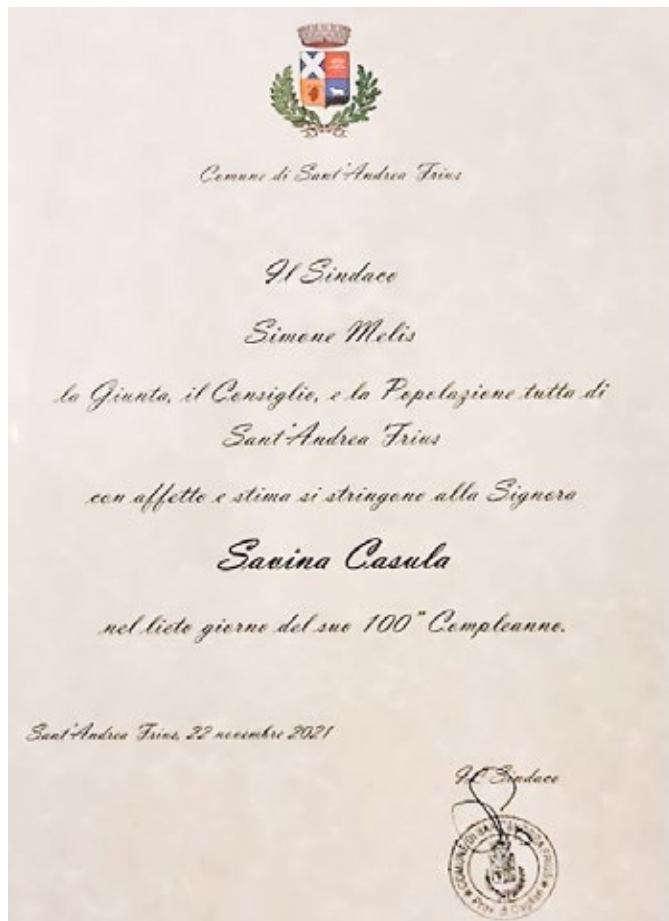 Comune di Sant'Andrea Frius
Il Sindaco
Simone Melis
la Giunta, il Consiglio, e la Popolazione tutta di
Sant'Andrea Frius
con affetto e stima si stringono alla Signora
Savina Casula
nel lieto giorno del suo 100° Compleanno.
Sant'Andrea Frius, 22 novembre 2021
Il Sindaco
COMUNE DI SANT'ANDREA FRIUS
Prov. di Cagliari